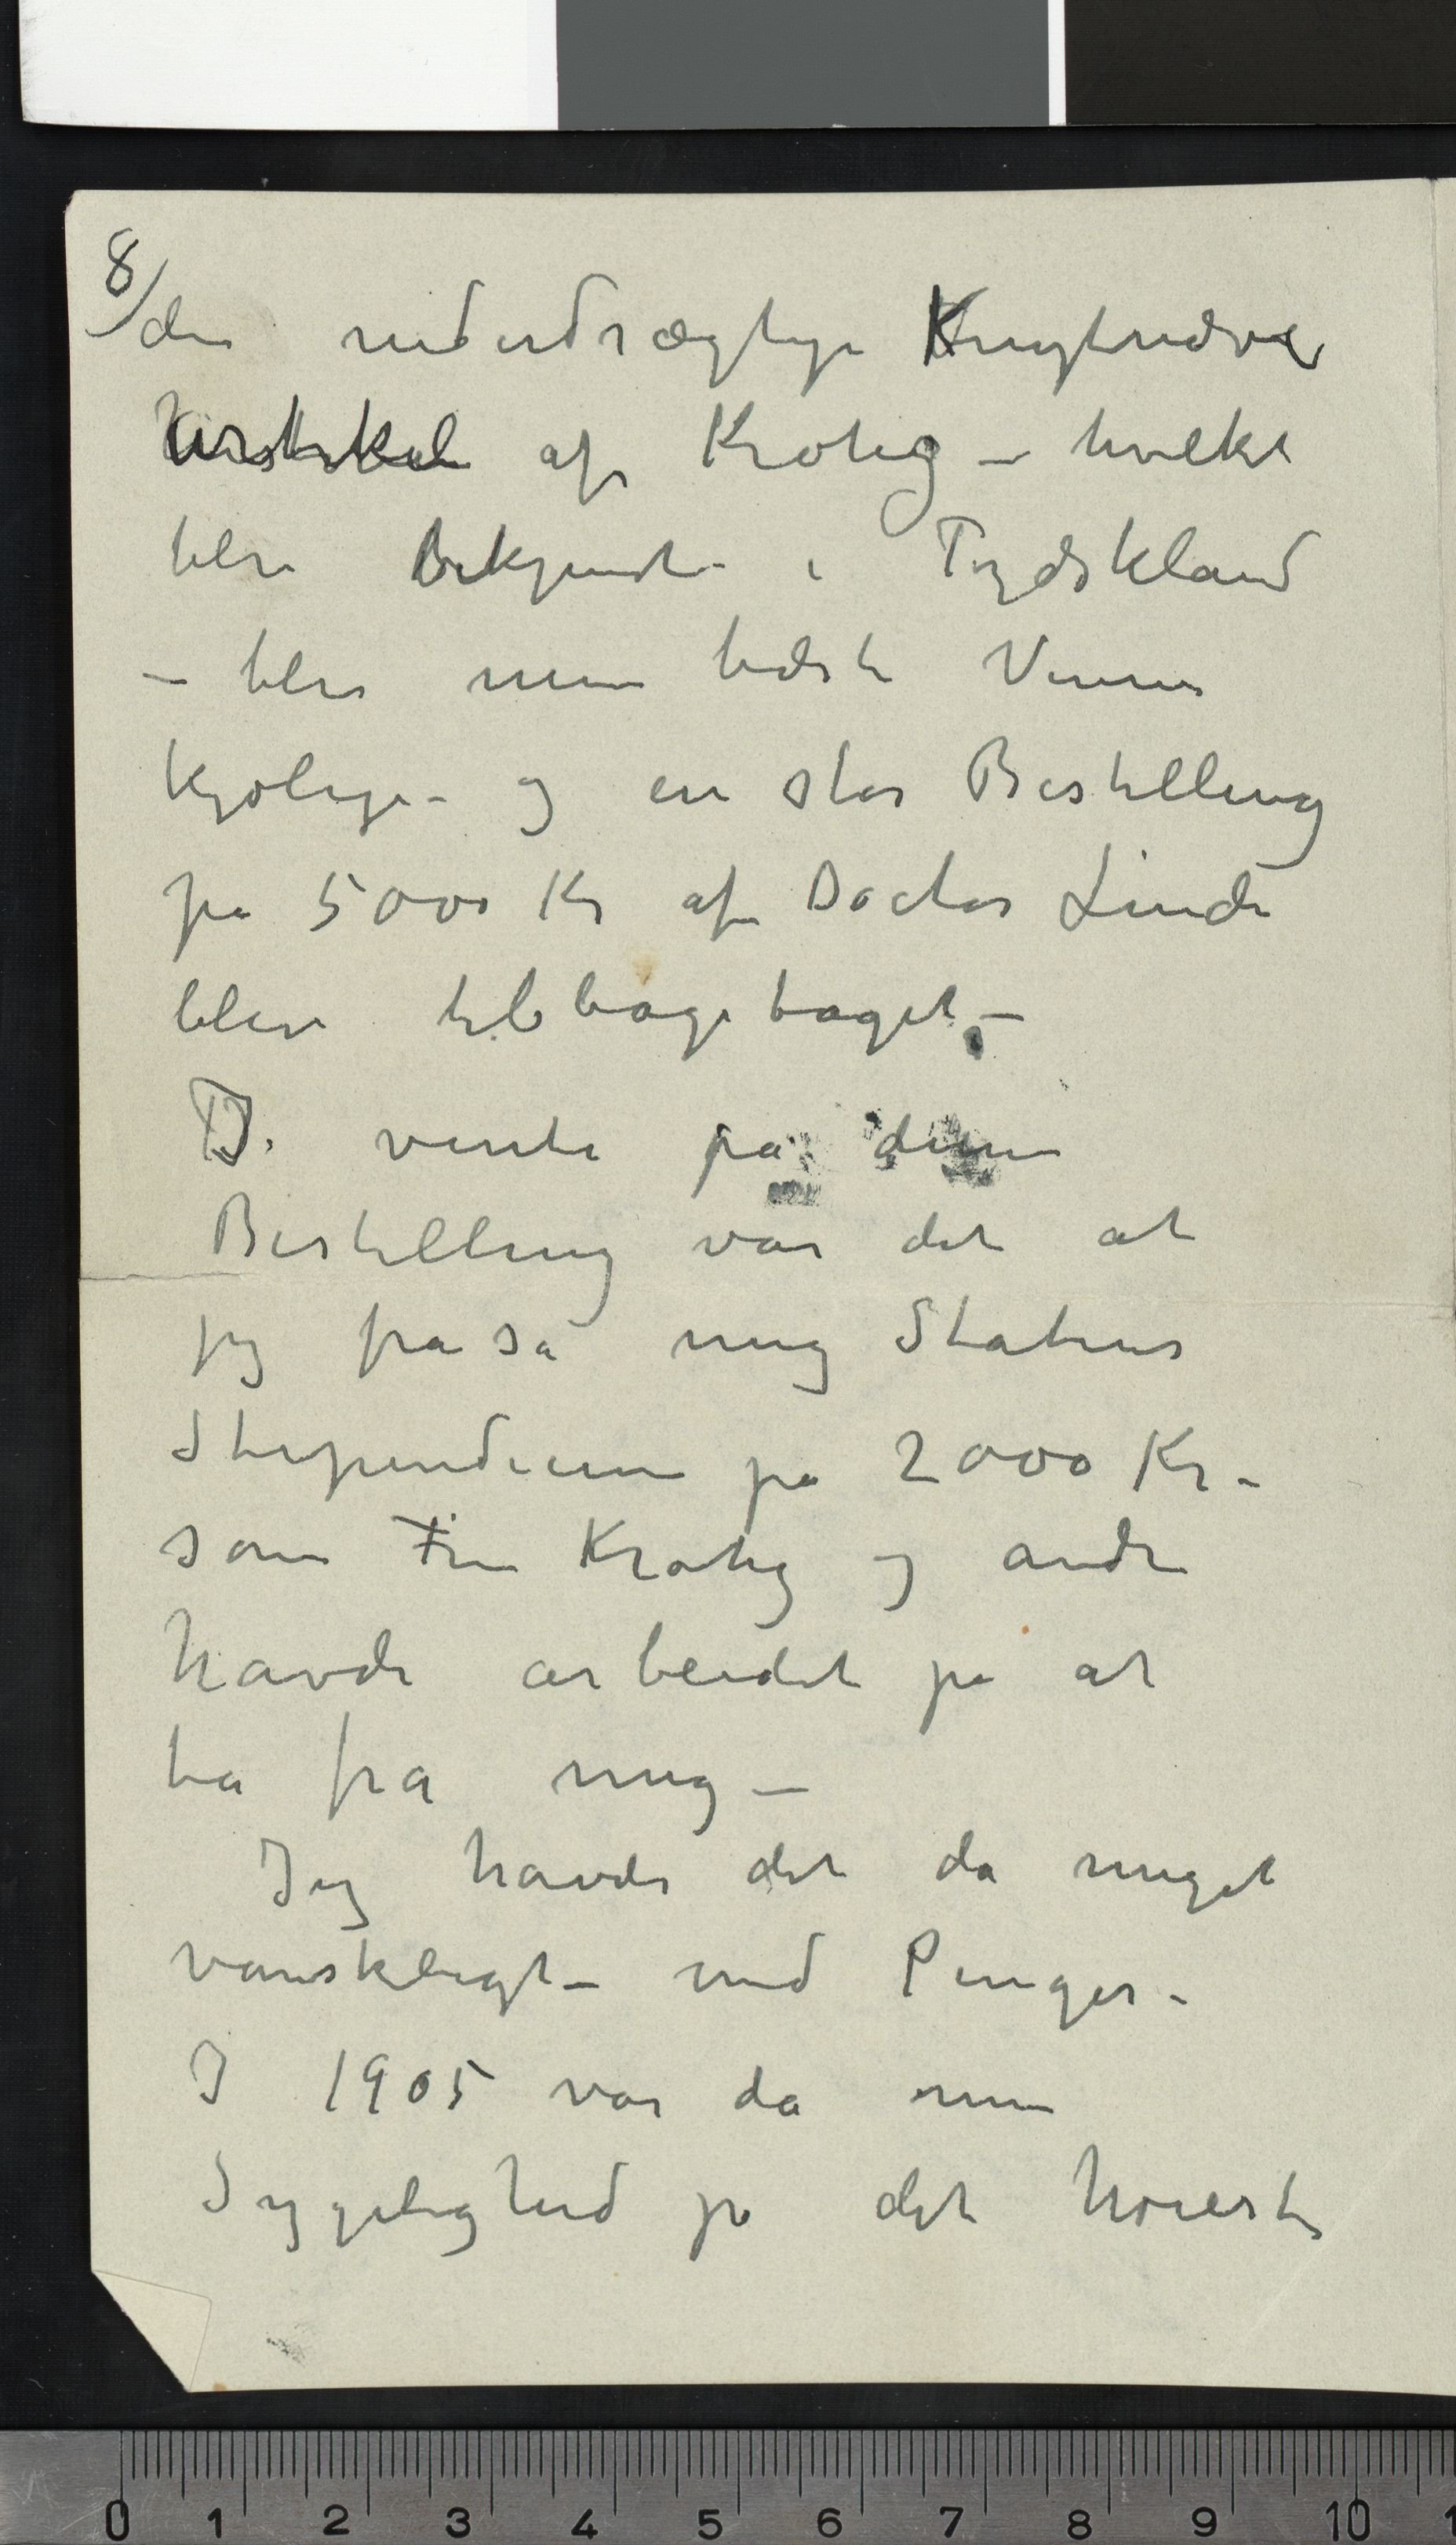 8/
den nederdrægtige Knytnæve
Artikel af Krohg – hvilket
blev bekjendt i Tydskland
– blev mine bedste Venner
kjølige – og en stor Bestilling
på 5000 Kr af Doctor Linde
blev tilbagetaget –
I vente på denne
Bestilling var det at
jeg frasa mig Statens
Stipendium på 2000 Kr –
som Fru Krohg og andre
havde arbeidet på at
ta fra mig –
Jeg havde det da meget
vanskligt – med Penger –
I 1905 var da min
Sygelighed på det høieste
0 1 2 3 4 5 6 7 8 9 10